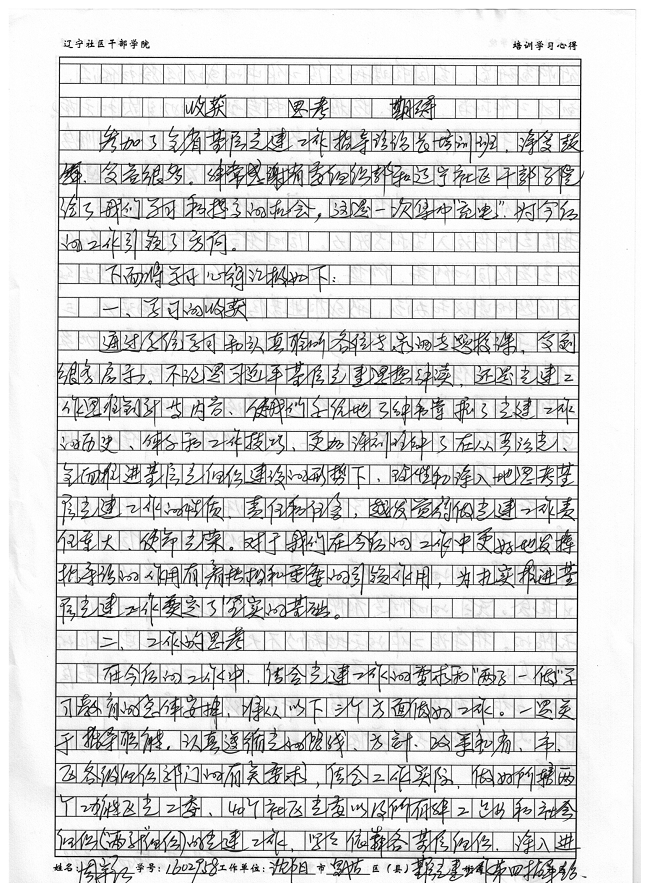 辽宁社区干部学院 培训学习心得
收获 思考 期待
参加了全省基层党建工作指导员培训班，深受鼓
舞、受益很多。非常感谢省委组织部和辽宁社区干部学院
给了我们学习和提高的机会，这是一次集中“充电”，为今后
的工作引领了方向。
下面将学习心得汇报如下：
一、学习的收获
通过学习和认真聆听各位专家的专题授课，受到
很多启示。不论是习近平基层党建思想解读，还是党建工
作思维创新与内容，使我们系统地了解和掌握了党建工作
的历史、体系和工作技巧，更加深刻理解了在从严治党、
全面推进基层党组织建设的形势下，理性和深入地思考基
层党建工作的性质、责任和任务，越发觉得做党建工作责
任重大、使命光荣。对于我们在今后的工作中更好地发挥
指导员的作用有着积极和重要的引领作用，为扎实推进基
层党建工作奠定了坚实的基础。
二、工作的思考
在今后的工作中，结合党建工作的要求和“两学一做”学
习教育的总体安排，将从以下三个方面做好工作。一是关
于指导职能。认真遵循党的路线、方针、政策和省、市、
区各级组织部门的有关要求，结合工作实际，做好所辖两
个功能区党工委、40个社区党委以及所有非公企业和社会
组织(“两新”组织)的党建工作，紧紧依靠各基层组织，深入进
姓名： 学号：1602958 工作单位：沈阳 市 区（县）